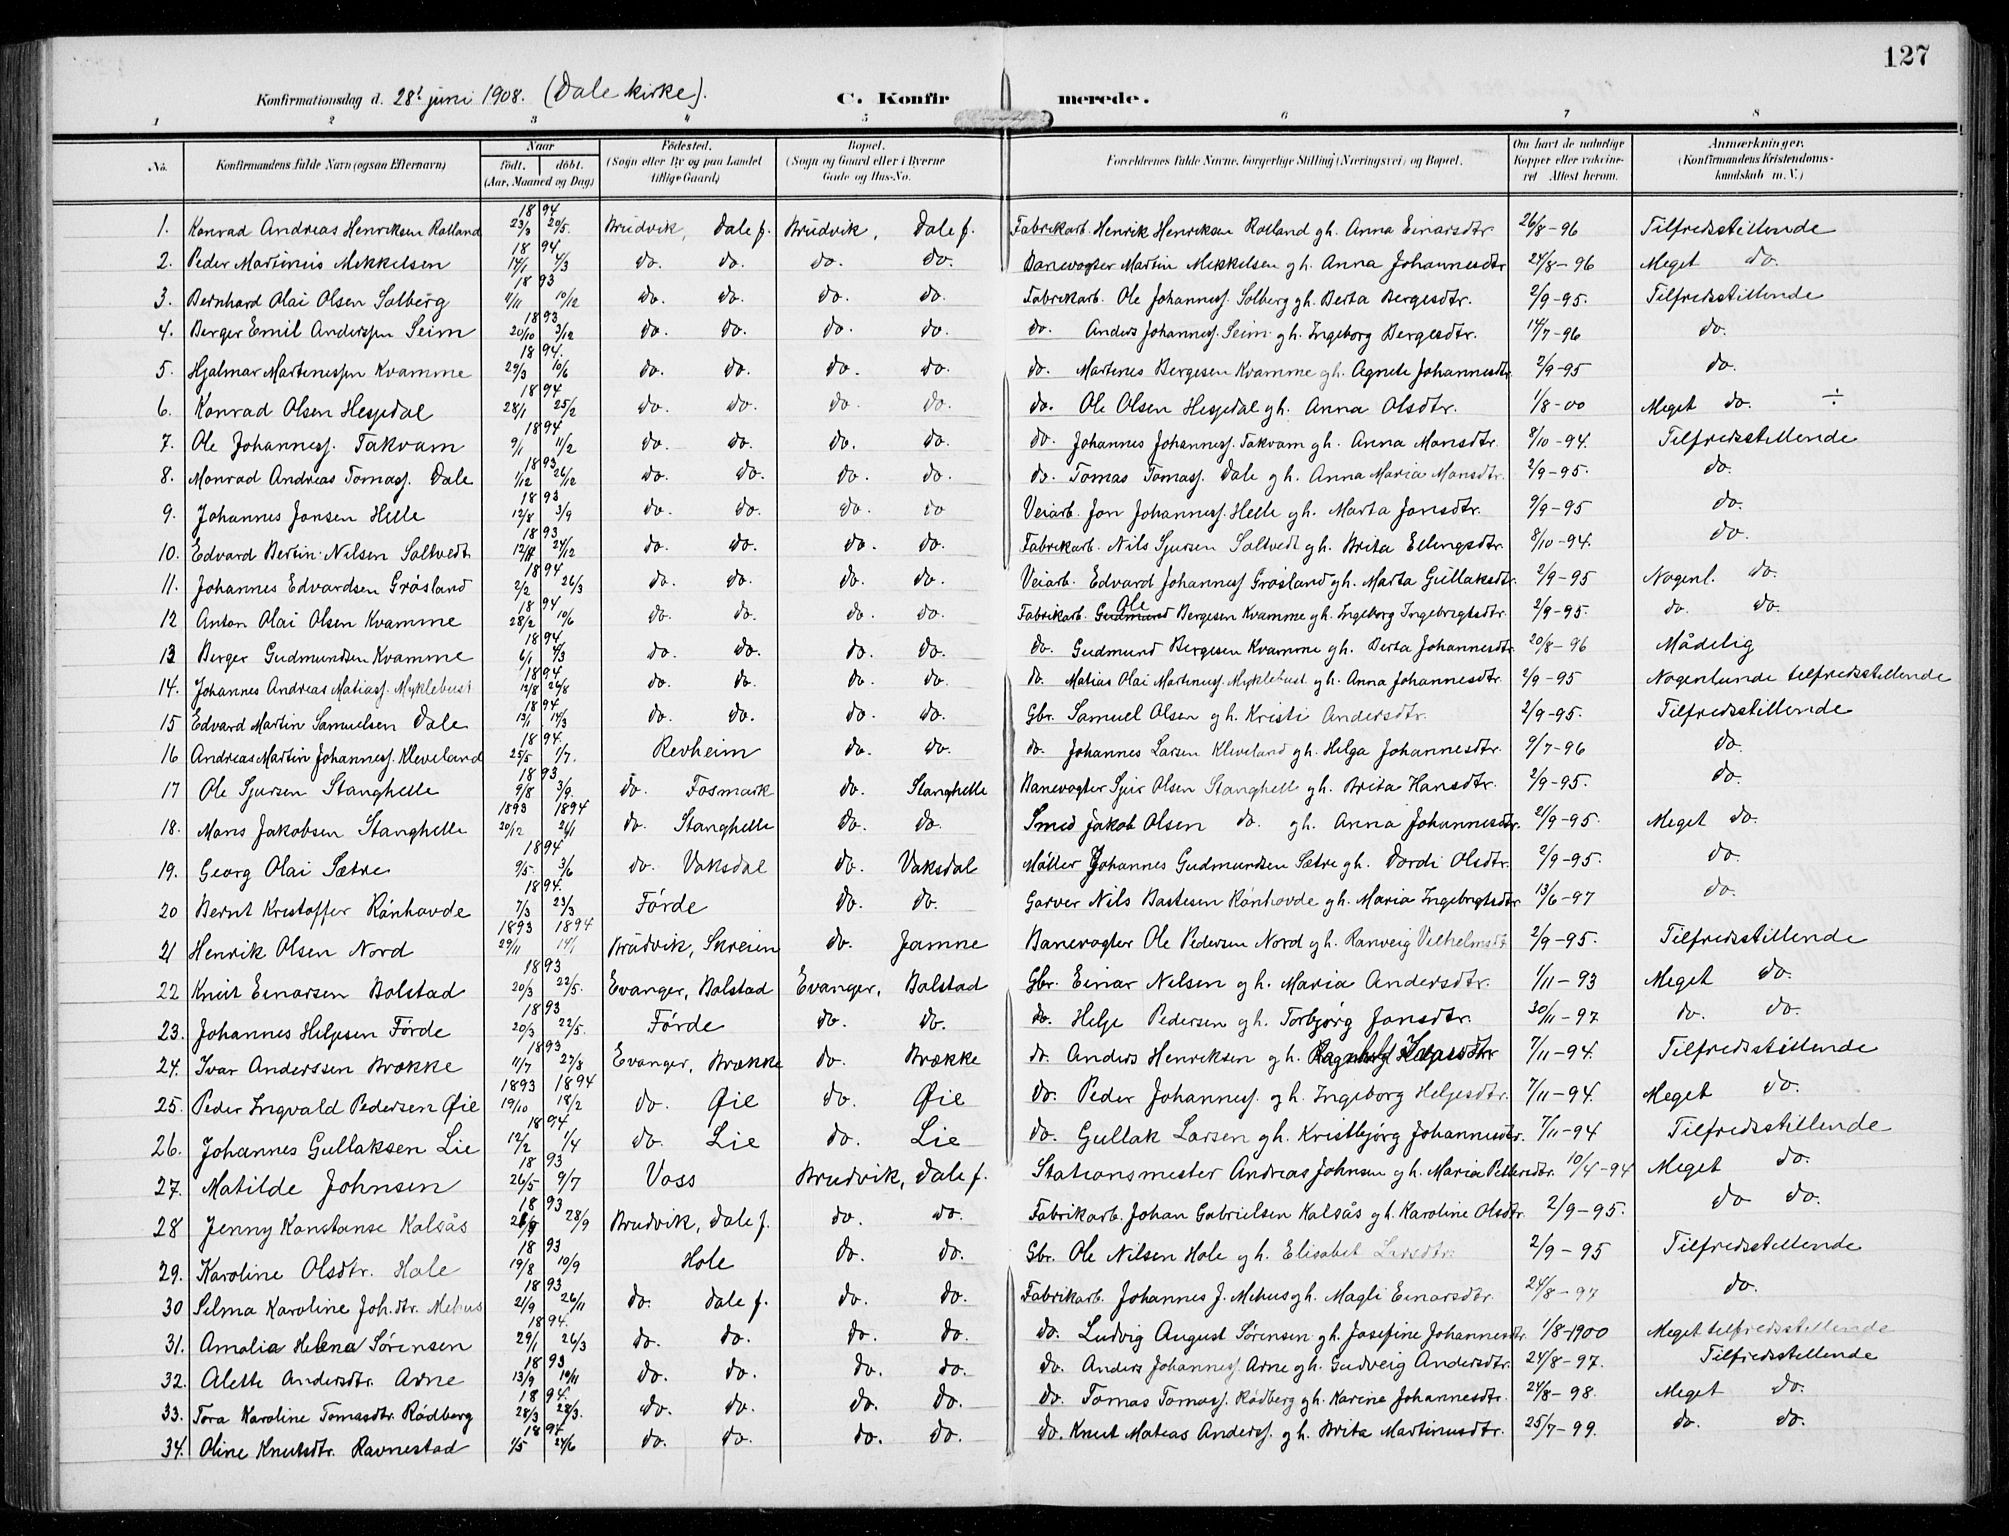 127
Konfirmationsdag d. 28! juni 1908. (Dale kirke). C. Konfir merede.
1 2 3 4 5 6 7 8
No. Konfirmandens fulde Navn (ogsaa Efternavn) Naar født. døbt. (Aar, Maaned og Dag) Fødested. (Sogn eller By og paa Landet tillige Gaard) Bopæl. (Sogn og Gaard eller i Byerne Gade og Hus-No. Forældrenes fulde Navne, borgerlige Stilling (Næringsvei) og Bopæl. Om havt de naturlige Kopper eller vakcineret. Attest herom. Anmærkninger. (Konfirmandens Kristendomskundskab m. V.)
1. Konrad Andreas Henriksen Rolland 1894 23/3 20/5. Brudvik, Dale f. Brudvik, Dale f. Fabrikarb. Henrik Henriksen Rolland gh. Anna Einarsdtr. 26/8-96 Tilfredsstillende
2. Peder Martinius Mikkelsen 1894 14/1 4/3 do. do. do. do. Banevogter Martin Mikkelsen gh. Anna Johannesdtr 24/8-96 Meget do.
3. Bernhard Olai Olsen Solberg 1893 9/11 10/12 do. do. do. do. Fabrikarb. Ole Johanness. Solberg gh. Berta Bergesdtr. 2/9-95. Tilfredsstillende
4. Berger Emil Anderssen Seim 1893 20/10 3/12 do. do. do. do. do. Anders Johanness. Seim gh. Ingeborg Bergesdtr. 14/7-96 do.
5. Hjalmar Martinessen Kvamme 1894. 29/3 10/6 do. do. do. do. do. Martines Bergesen Kvamme gh. Agnete Johannesdtr 2/9-95 do.
6. Konrad Olsen Hesjedal 1894 28/1 25/2 do. do. do. do. do. Ole Olsen Hesjedal gh. Anna Olsdtr. 1/8-00 Meget do. ÷
7. Ole Johanness. Takvam 1894 9/1 11/2 do. do. do. do. do. Johannes Johanness. Takvam gh. Anna Monsdtr. 8/10-94. Tilfredsstillende
8. Monrad Andreas Tomass. Dale 1893 1/12 26/12 do. do. do. do. do. Tomas Tomass. Dale gh. Anna Maria Monsdtr. 2/9-95. do.
9. Johannes Jonsen Helle 1893 12/8 3/9 do. do. do. do Veiarb. Jon Johanness. Helle gh. Marta Jonsdtr. 9/9-95 do.
10. Edvard Bertin Nilsen Saltvedt 1893 24/12 do. do. do. do. Fabrikarb. Nils Sjursen Saltvedt gh. Brita Ellingsdtr. 8/10-94. do.
11. Johannes Edvardsen Gråsland 1894 2/2 26/3 do. do. do. do. Veiarb. Edvard Johanness Gråsland gh. Marta Gullaksdtr. 2/9-95 Nogenl. do.
12 Anton Olai Olsen Kvamme 1894 28/2 10/6 do. do. do. do. Fabrikarb. Gudmund Ole Bergesen Kvamme gh. Ingeborg Ingebrigtsdtr 2/9-95. do. do.
13 Berger Gudmundsen Kvamme 1894 6/1 4/3 do. do. do. do. do. Gudmund Bergesen Kvamme gh. Berta Johannesdtr. 20/8-96 Mådelig
14. Johannes Andreas Matiass. Myklebust 1894 12/8 26/8 do. do. do. do. do. Matias Olai Martinuss. Myklebust gh. Anna Johannesdtr. 2/9-95 Nogenlunde tilfredsstillende
15 Edvard Martin Samuelsen Dale 1894 13/1 14/3 do. do. do. do. Gbr. Samuel Olsen gh. Kristi Andersdtr. 2/9-95. Tilfredsstillende
16 Andreas Martin Johanness. Kleveland 1894. 25/5 1/7. Revheim do. do. do. Johannes Larsen Kleveland gh. Helga Johannesdtr. 9/7-96 do.
17 Ole Sjursen Stanghelle 1893 9/8 3/9. do. Fosmark do. Stanghelle Banevogter Sjur Olsen Stanghelle gh. Brita Hansdtr. 2/9-95. do.
18. Mons Jakobsen Stanghelle 1893 1894 20/12 21/1 do. Stanghelle do. do. Smed Jakob Olsen do. gh. Anna Johannesdtr. 2/9-95. Meget do.
19. Georg Olai Sætre 1894 9/5. 3/6 do. Vaksdal do. Vaksdal Møller Johannes Gudmundsen Sætre gh. Dordi Olsdtr. 2/9-95. do.
20 Bernt Kristoffer Rånhovde 1894. 7/3 23/3 Førde do. do. Garver Nils Bastesen Rånhovde gh. Maria Ingebrigtsdtr 13/6-97 do.
21 Henrik Olsen Nord 1893 1894 29/11 14/1 Brudvik, Skreien do. Jamne Banevogter Ole Pedersen Nord gh. Ranveig Vilhelmsdt. 2/9-95. Tilfredsstillende
22 Knut Einarsen Bolstad 1893 20/3 22/5. Evanger, Bolstad Evanger, Bolstad Gbr. Einar Nilsen gh. Maria Andersdtr. 1/11-93 Meget do.
23. Johannes Helgesen Førde 1893 20/3 22/5. Førde do. do. do. Helge Pedersen gh. Torbjørg Jonsdtr. 30/11-97 do. do.
24. Ivar Anderssen Brække 1893 11/7 27/8 Evanger, Brække do. Brække do. Anders Henriksen gh. 7/11-94. Tilfredsstillende
25. Peder Ingvald Pedersen Øie 1893 1894 19/10 18/2 do. Øie do. Øie do. Peder Johanness. gh. Ingeborg Helgesdtr. 7/11-94. Meget do.
26. Johannes Gullaksen Lie 1894 12/2 1/4 do. Lie do. Lie do. Gullak Larsen gh. Kristbjørg Johannesdtr. 7/11-94 Tilfredsstillende
27. Matilde Johnsen 1893 26/5 9/7 Voss Brudvik, Dale f. Stationsmester Andreas Johnsen gh. Maria Pettersdtr. 10/4-94 Meget do.
28 Jenny Konstanse Kalsås 1893 28/9 Brudvik, Dale f. do. do. Fabrikarb. Johan Gabrielsen Kalsås gh. Karoline Olsdtr. 2/9-95. do do.
29. Karoline Olsdtr. Hole 1893 19/8 10/9 Hole do. do. Gbr. Ole Nilsen Hole gh. Elisabet Larsdtr. 2/9-95 Tilfredsstillende
30 Selma Karoline Joh.dtr. Mehus 1893 21/9 26/11 do. Dale f. do. do. Fabrikarb. Johannes J. Mehus gh. Magli Einarsdtr. 24/8-97 do.
31. Amalia Helena Sørensen 1894. 29/1 26/3 do. do. do. do. do. Ludvig August Sørensen gh. Josefine Johannesdtr. 1/8-1900 Meget tilfredsstillende
32. Alette Andersdtr. Arne 1893 13/9 19/11 do. do. do. do. do. Anders Johanness. Arne gh. Gudveig Andersdtr. 24/8-97. Tilfredsstillende
33. Tora Karoline Tomasdtr. Rødberg 1894. 28/3 28/3. do. do. do. do. do. Tomas Tomass. Rødberg gh. Karine Johannesdtr. 24/8-98. Meget do.
34. Oline Knutsdtr. Ravnestad 1894 1/5 24/6 do. do. do. do. do. Knut Matias Anderss. gh. Brita Martinusdtr. 25/7-99. do. do.